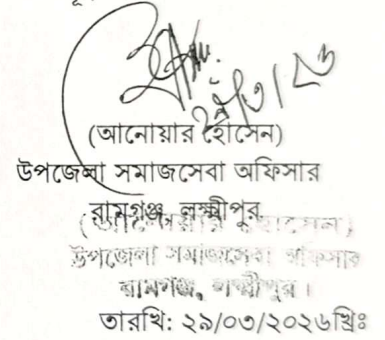 ২৯/৩/২৬
(আনোয়ার হোসেন)
উপজেলা সমাজসেবা অফিসার
রামগঞ্জ, লক্ষ্মীপুর
(আনোয়ার হোসেন)
উপজেলা সমাজসেবা অফিসার
রামগঞ্জ, লক্ষ্মীপুর।
তারখি: ২৯/০৩/২০২৬খ্রিঃ